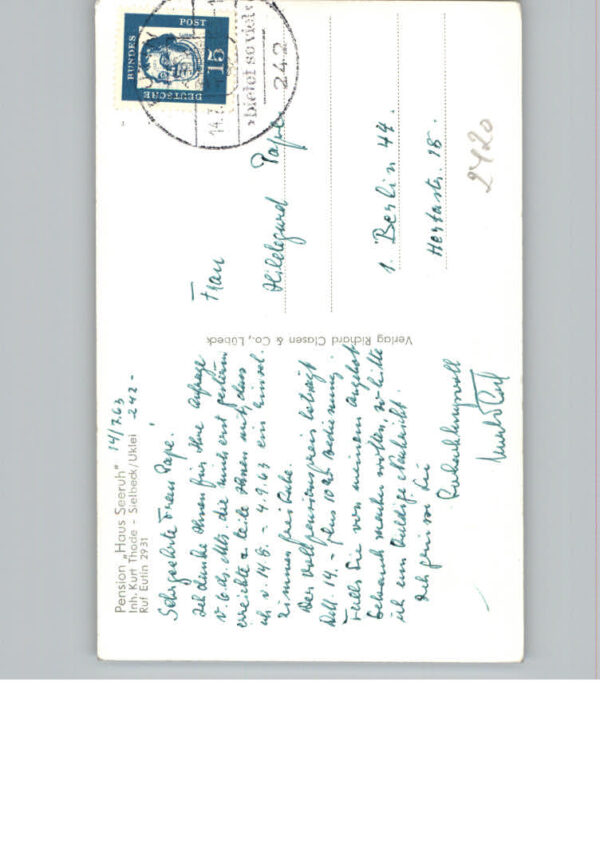 Pension „Haus Seeruh"
Inh. Kurt Thode - Sielbeck/Uklei
Ruf Eutin 2931
14/7.63
-242-
Sehrgeehrte Frau Pape!
Ich danke Ihnen für Ihre Anfrage
v. 6. ds. Mts. die mich erst gestern
erreichte u. teile Ihnen mit, dass
ich v. 14.8. - 4.9.63 ein Einzel.
Zimmer frei habe.
Der Vollpensionspreis beträgt
DM. 14.- plus 10% Bedienung.
Falls Sie von meinem Angebot
Gebrauch machen wollen, so bitte
ich um baldige Nachricht.
Ich grüsse Sie
Hochachtungsvoll
Verlag Richard Clasen & Co., Lübeck
DEUTSCHE
BUNDES
POST
15
14.7.
»bietet so viel«
242
Frau
Hildegard Pape
1. Berlin 44.
Hertastr. 18.
2420